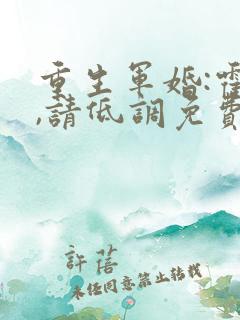 重生軍婚:霍
,請低調免費
許蓓
未經同意禁止轉載